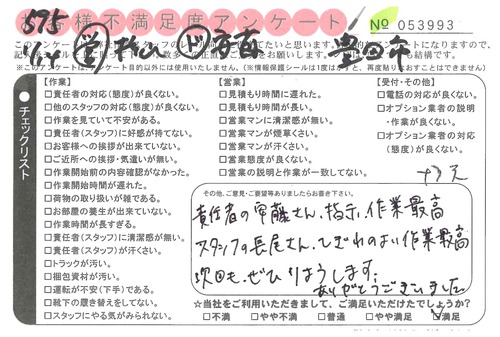 お客様不満足度アンケート
№ 053993
※このアンケートは、アンケート目的以外には使用いたしません。(※情報保護シールは1度はがすと、再度貼りなおすことはできません)
チェックリスト
【作業】
□責任者の対応(態度)が良くない。
□他のスタッフの対応(態度)が良くない。
□作業を見ていて不安がある。
□責任者(スタッフ)に好感が持てない。
□お客様への挨拶が出来ていない。
□ご近所への挨拶・気遣いが無い。
□作業開始前の内容確認がなかった。
□作業開始時間が遅れた。
□荷物の取り扱いが雑である。
□お部屋の養生が出来ていない。
□作業時間が長すぎる。
□責任者(スタッフ)に清潔感が無い。
□責任者(スタッフ)が汗くさい。
□トラックが汚い。
□梱包資材が汚い。
□運転が不安(下手)である。
□靴下の履き替えをしてない。
□スタッフにやる気がみられない。
【営業】
□見積もり時間に遅れた。
□見積もり時間が長い。
□営業マンに清潔感が無い。
□営業マンが煙草くさい。
□営業マンが汗くさい。
□営業態度が良くない。
□営業の説明と作業が一致してない。
【受付・その他】
□電話の対応が良くない。
□オプション業者の説明
・作業が良くない。
□オプション業者の対応
(態度)が良くない。
その他、ご意見・ご要望等ありましたらお書き下さい。
責任者の常藤さん、指示、作業最高
スタッフの長尾さん、てぎわのよい作業最高
次回も、ぜひりようします。
ありがとうございました
☆当社をご利用いただきまして、ご満足いただけたでしょうか?
□不満 □やや不満 □普通 □やや満足 □満足